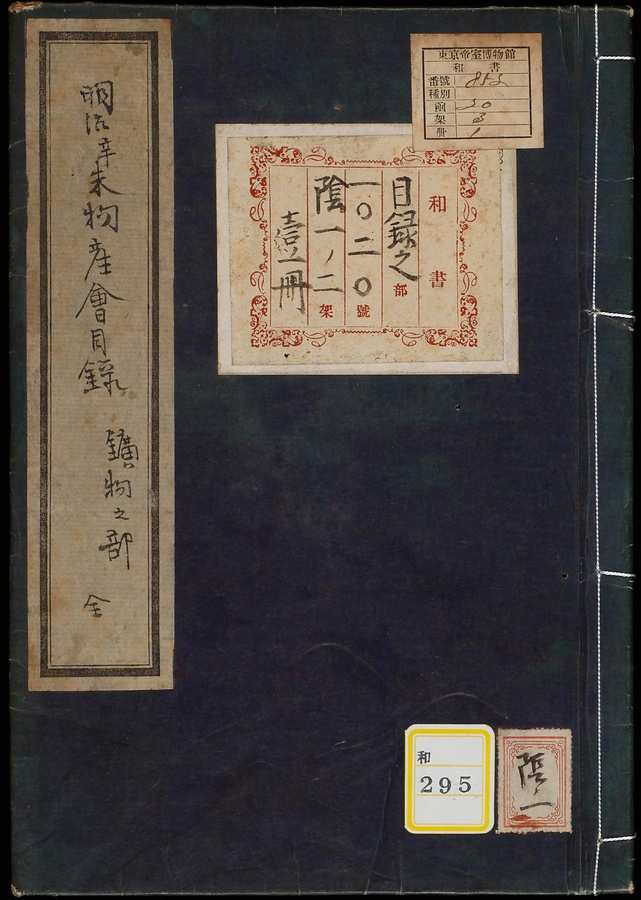 明治辛未物産會目録
鑛物之部
全
東京帝室博物館
和書
番號
種別
函 20
架 3
冊 1
和書
目録之部
一〇二〇號
陰一ノ二架
壹冊
和
295
陰ノ一